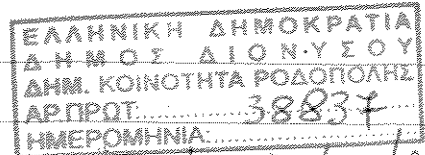 ΕΛΛΗΝΙΚΗ ΔΗΜΟΚΡΑΤΙΑ
ΔΗΜΟΣ ΔΙΟΝΥΣΟΥ
ΔΗΜ. ΚΟΙΝΟΤΗΤΑ ΡΟΔΟΠΟΛΗΣ
ΑΡ.ΠΡΩΤ. 38837
ΗΜΕΡΟΜΗΝΙΑ: